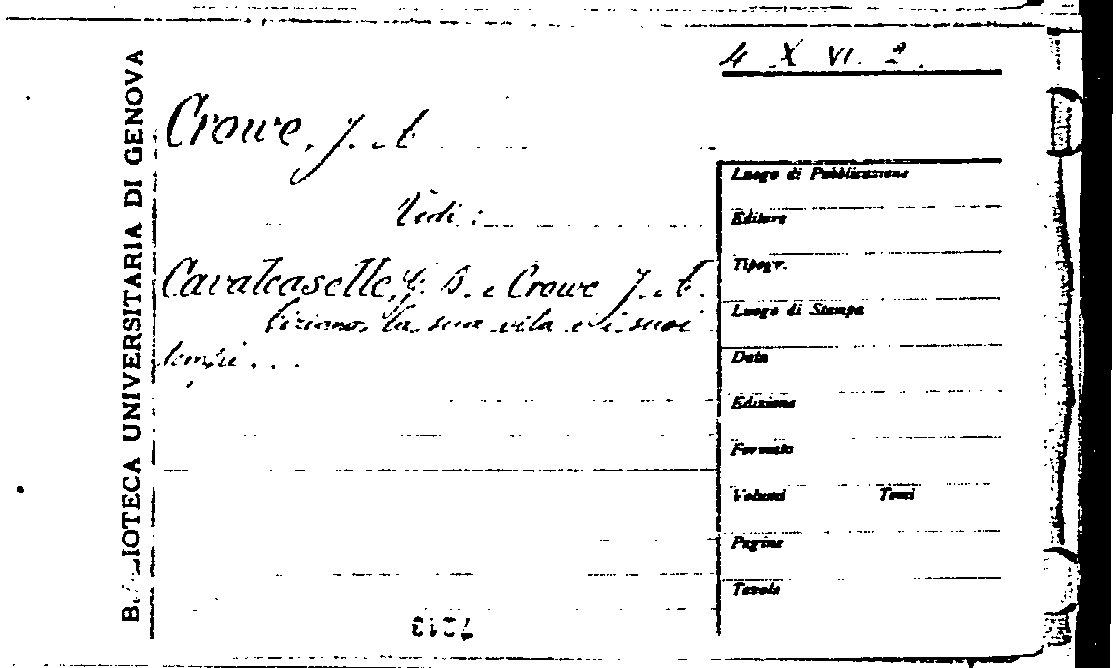 BIBLIOTECA UNIVERSITARIA DI GENOVA
4 X VI. 2.
Crowe, J. A.
Vedi:
Cavalcaselle, G. B. e Crowe J. A.
Tiziano, la sua vita e i suoi
tempi...
Luogo di Pubblicazione
Editore
Tipogr.
Luogo di Stampa
Data
Edizione
Formato
Volumi Tomi
Pagine
Tavole